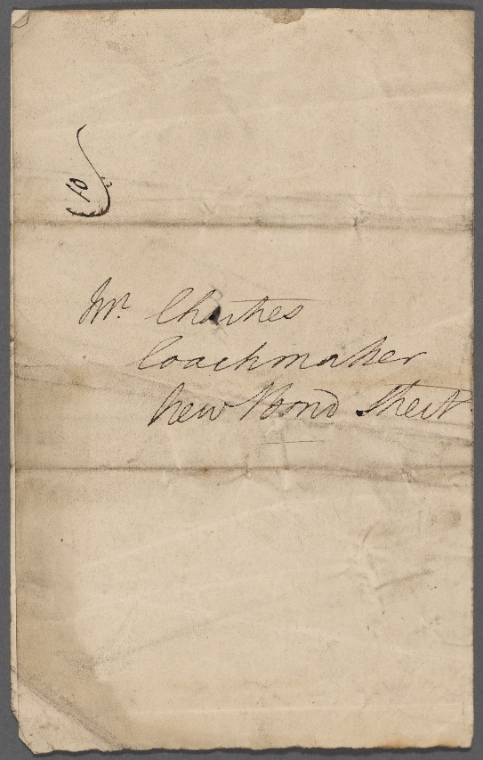 10
Mr.
Coachmaker
New Bond Street